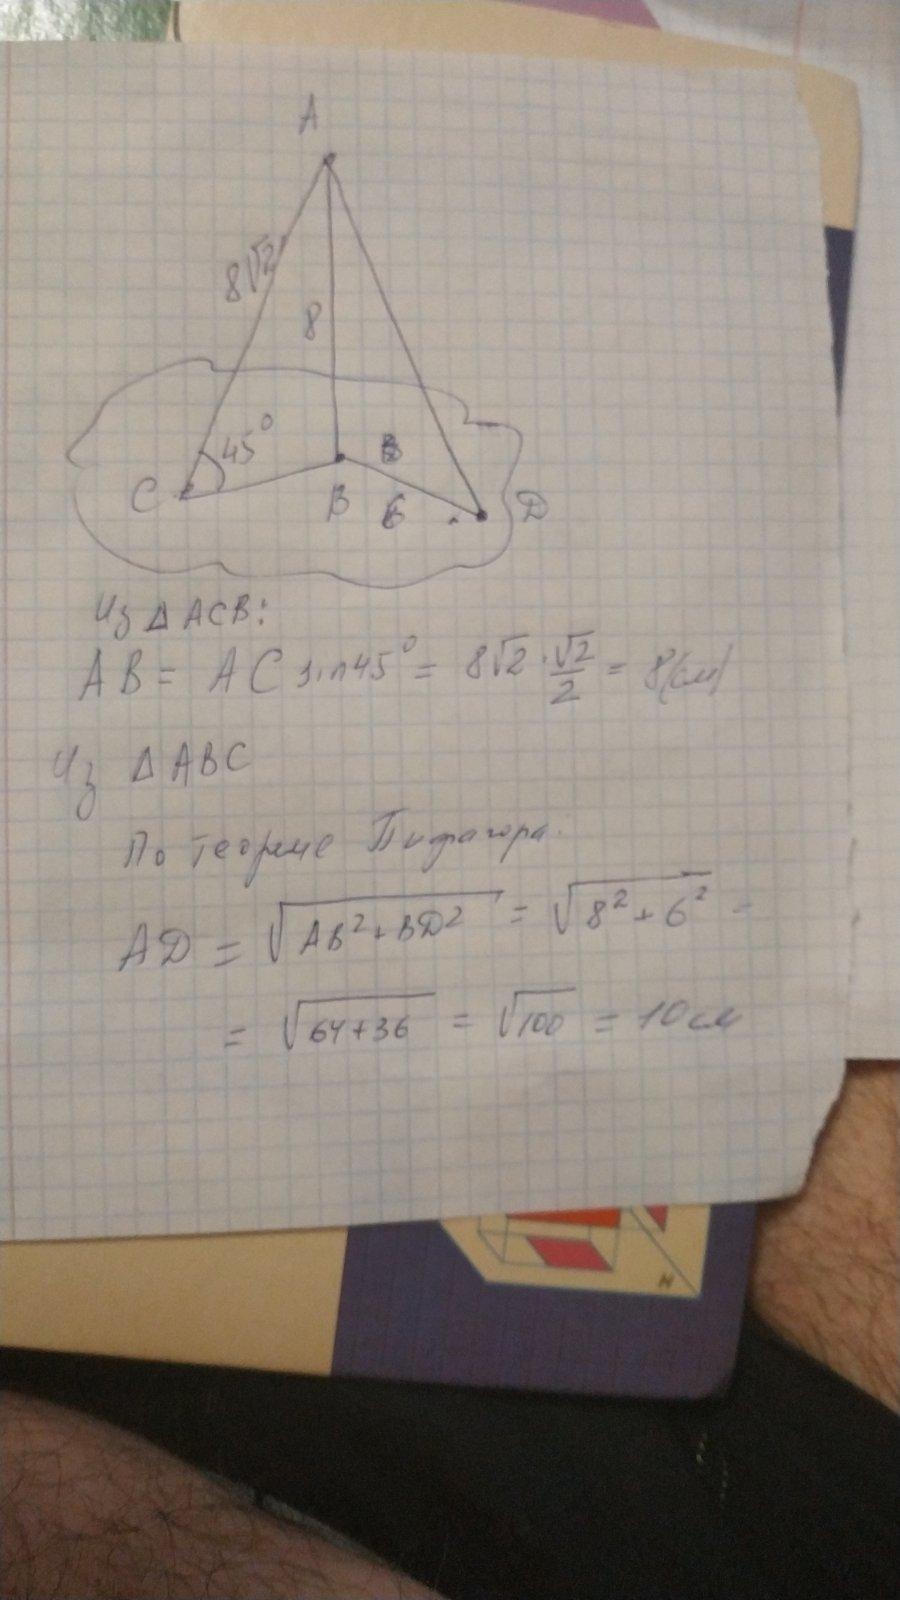 A
8√2
8
45°
C
B
6
D
Из △ACB:
AB = AC sin45° = 8√2 · √2/2 = 8(см)
Из △ABC
По теореме Пифагора.
AD = √(AB² + BD²) = √(8² + 6²) =
= √(64+36) = √100 = 10 см
H